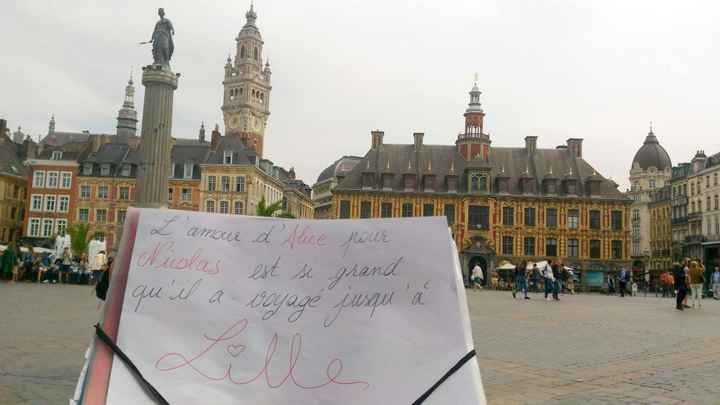 L'amour d'Alice pour
Nicolas est si grand
qu'il a voyagé jusqu'à
Lille